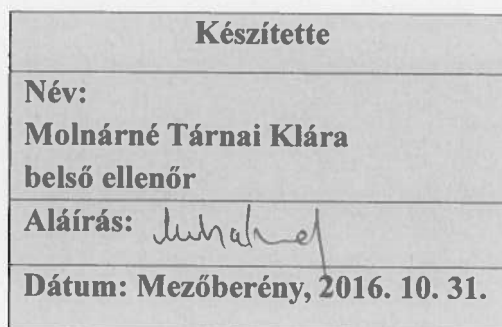 Készítette
Név:
Molnárné Tárnai Klára
belső ellenőr
Aláírás:
Dátum: Mezőberény, 2016. 10. 31.